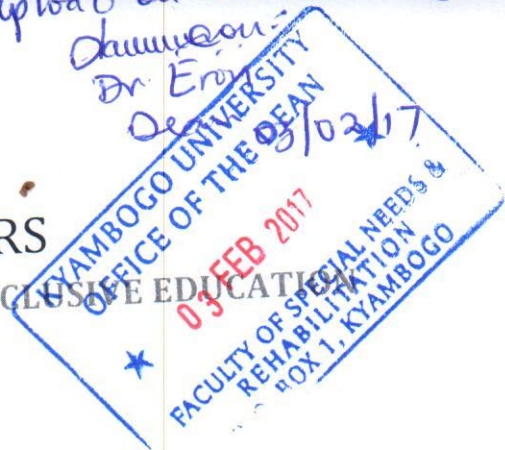 upload
Dr. Eron
Dean 03/02/17
RS
CLUSIVE EDUCATION
KYAMBOGO UNIVERSITY
OFFICE OF THE DEAN
★ 03 FEB 2017 ★
FACULTY OF SPECIAL NEEDS &
REHABILITATION
BOX 1, KYAMBOGO